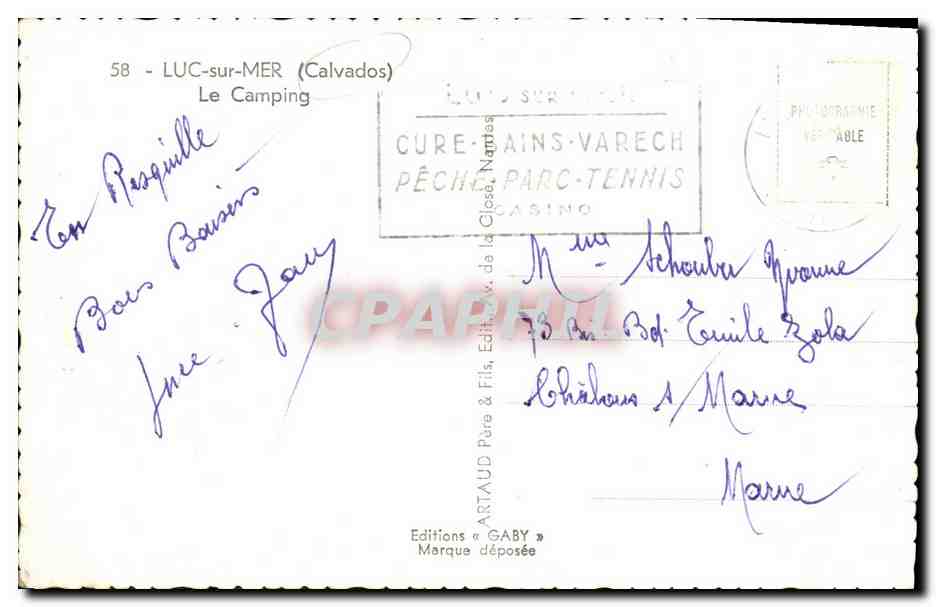 58 - LUC-sur-MER (Calvados)
Le Camping
En
Bons Baisers
CURE-BAINS-VARECH
PÊCHE-PARC-TENNIS
CASINO
PHOTOGRAPHIE
VERITABLE
Mme Yvonne
73 Bis Bd. Emile Zola
Châlons s/ Marne
Marne
ARTAUD Père & Fils, Edit., Av. de la Close, Nantes
Editions « GABY »
Marque déposée
CPAPHIL